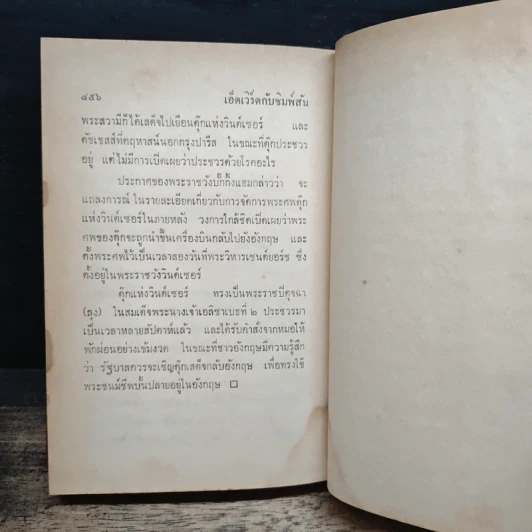 ๔๕๖ เอ็ดเวิร์ดกับซิมพ์สัน
พระสวามีก็ได้เสด็จไปเยือนดุ๊กแห่งวินด์เซอร์ และ
ดัชเชสส์ที่คฤหาสน์นอกกรุงปารีส ในขณะที่ดุ๊กประชวร
อยู่ แต่ไม่มีการเปิดเผยว่าประชวรด้วยโรคอะไร
ประกาศของพระราชวังบั๊กกิ้งแฮมกล่าวว่า จะ
แถลงการณ์ ในรายละเอียดเกี่ยวกับการจัดการพระศพดุ๊ก
แห่งวินด์เซอร์ในภายหลัง วงการใกล้ชิดเปิดเผยว่าพระ
ศพของดุ๊กจะถูกนำขึ้นเครื่องบินกลับไปยังอังกฤษ และ
ตั้งพระศพไว้เป็นเวลาสองวันที่พระวิหารเซนต์ยอร์ช ซึ่ง
ตั้งอยู่ในพระราชวังวินด์เซอร์
ดุ๊กแห่งวินด์เซอร์ ทรงเป็นพระราชปิตุจฉา
(ลุง) ในสมเด็จพระนางเจ้าเอลิซาเบธที่ ๒ ประชวรมา
เป็นเวลาหลายสัปดาห์แล้ว และได้รับคำสั่งจากหมอให้
พักผ่อนอย่างเข้มงวด ในขณะที่ชาวอังกฤษมีความรู้สึก
ว่า รัฐบาลควรจะเชิญดุ๊กเสด็จกลับอังกฤษ เพื่อทรงใช้
พระชนม์ชีพบั้นปลายอยู่ในอังกฤษ □